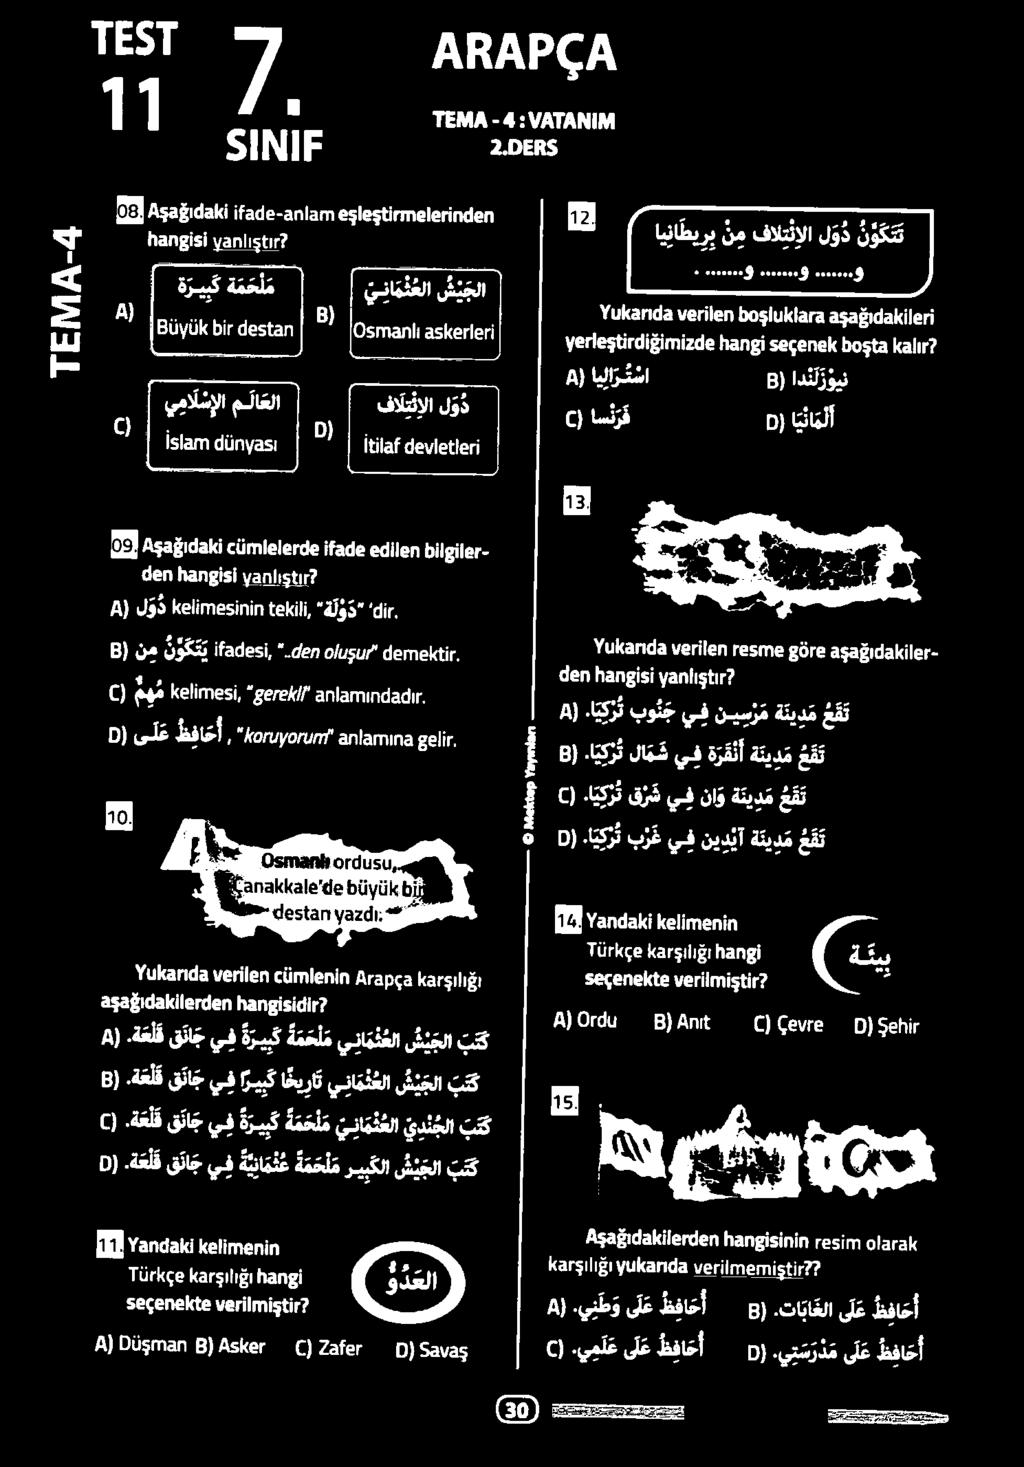 TEST
11
7.
SINIF
ARAPÇA
TEMA - 4 : VATANIM
2.DERS
TEMA-4
08. Aşağıdaki ifade-anlam eşleştirmelerinden
hangisi yanlıştır?
A) مَلْحَمَة كَبِيـرَة
Büyük bir destan
B) الجَيْشُ العُثْمَانِـيّ
Osmanlı askerleri
C) العَالَـم الإِسْلَامِي
İslam dünyası
D) دُوَل الاِئْتِلَاف
İtilaf devletleri
09. Aşağıdaki cümlelerde ifade edilen bilgiler-
den hangisi yanlıştır?
A) دُوَل kelimesinin tekili, "دَوْلَة" 'dir.
B) يَتَكَوَّنُ مِن ifadesi, "..den oluşur" demektir.
C) مُهِمٌّ kelimesi, "gerekli" anlamındadır.
D) أُحَافِظُ عَلَـى , "koruyorum" anlamına gelir.
10.
Osmanlı ordusu,
Çanakkale'de büyük bir
destan yazdı.
Yukarıda verilen cümlenin Arapça karşılığı
aşağıdakilerden hangisidir?
A) كَتَبَ الجَيْشُ العُثْمَانِـي مَلْحَمَةً كَبِيـرَةً فِـي جَانَق قَلْعَة.
B) كَتَبَ الجَيْشُ العُثْمَانِـي تَارِيخًا كَبِيـرًا فِـي جَانَق قَلْعَة.
C) كَتَبَ الجُنْدِيّ العُثْمَانِـيّ مَلْحَمَةً كَبِيـرَةً فِـي جَانَق قَلْعَة.
D) كَتَبَ الجَيْشُ الكَبِيـر مَلْحَمَةً عُثْمَانِيَّةً فِـي جَانَق قَلْعَة.
11. Yandaki kelimenin
Türkçe karşılığı hangi
seçenekte verilmiştir?
العَدُوُّ
A) Düşman B) Asker C) Zafer D) Savaş
12.
تَتَكَوَّنُ دُوَل الاِئْتِلَاف مِنْ بِرِيطَانِيَا
و........و........و........ .
Yukarıda verilen boşluklara aşağıdakileri
yerleştirdiğimizde hangi seçenek boşta kalır?
A) اسْتُـرَالِيَا B) نيُوزْلَنْدا
C) فَرَنْسا D) أَلْمَانْيَا
13.
Yukarıda verilen resme göre aşağıdakiler-
den hangisi yanlıştır?
A) تَقَعُ مَدِينَة مَرْسِيـن فِـي جَنُوب تُرْكِيَا.
B) تَقَعُ مَدِينَة أَنْقَرَة فِـي شَمَال تُرْكِيَا.
C) تَقَعُ مَدِينَة وَان فِـي شَرْق تُرْكِيَا.
D) تَقَعُ مَدِينَة آيْدِين فِـي غَرْب تُرْكِيَا.
© Mektep Yayınları
14. Yandaki kelimenin
Türkçe karşılığı hangi
seçenekte verilmiştir?
بِيئَـة
A) Ordu B) Anıt C) Çevre D) Şehir
15.
Aşağıdakilerden hangisinin resim olarak
karşılığı yukarıda verilmemiştir??
A) أُحَافِظُ عَلَى وَطَنِي. B) أُحَافِظُ عَلَى الغَابَات.
C) أُحَافِظُ عَلَى عَلَمِي. D) أُحَافِظُ عَلَى مَدْرَسَتِي.
30